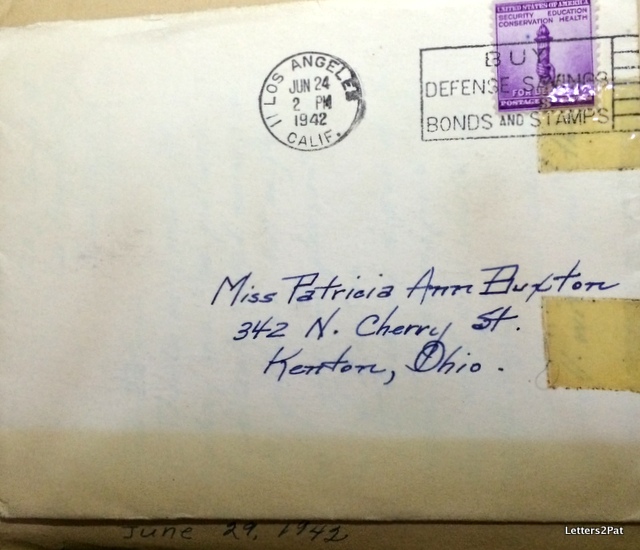 UNITED STATES OF AMERICA
SECURITY EDUCATION
CONSERVATION HEALTH
FOR DE
POSTAGE
LOS ANGELES
JUN 24
2 PM
1942
11 CALIF.
BUY
DEFENSE SAVINGS
BONDS AND STAMPS
Miss Patricia Ann Buxton
342 N. Cherry St.
Kenton, Ohio.
June 29, 1942
Letters2Pat